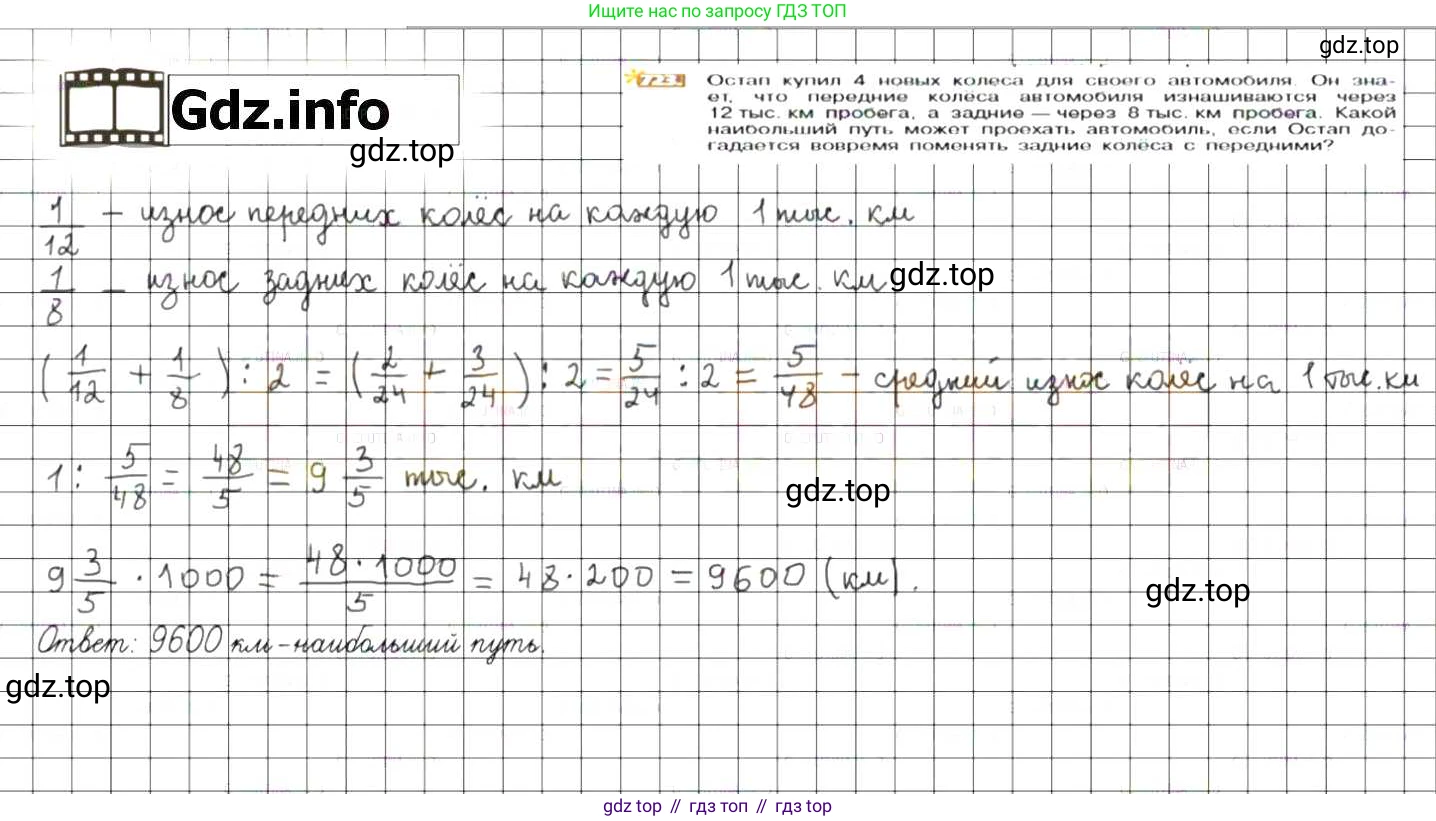 Ищите нас по запросу ГДЗ ТОП
gdz.top
Gdz.info
gdz.top
1123 Остап купил 4 новых колеса для своего автомобиля. Он зна-
ет, что передние колёса автомобиля изнашиваются через
12 тыс. км пробега, а задние — через 8 тыс. км пробега. Какой
наибольший путь может проехать автомобиль, если Остап до-
гадается вовремя поменять задние колёса с передними?
1/12 – износ передних колёс на каждую 1 тыс. км
1/8 – износ задних колёс на каждую 1 тыс. км
gdz.top
(1/12 + 1/8) : 2 = (2/24 + 3/24) : 2 = 5/24 : 2 = 5/48 – средний износ колёс на 1 тыс. км
1 : 5/48 = 48/5 = 9 3/5 тыс. км
gdz.top
9 3/5 · 1000 = 48 · 1000/5 = 48 · 200 = 9600 (км).
gdz.top
Ответ: 9600 км – наибольший путь.
gdz.top
gdz top // гдз топ // gdz top